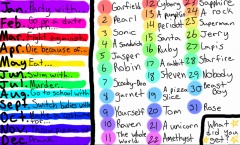 Jan. Party with...
Feb. Go on a date with...
Mar. Fight against
Apr. Die because of...
May Eat...
Jun. Swim with...
Jul. Murder...
Aug. Go to school with
Sept. Switch bodies with
Oct.
Nov.
Dec.
1 Garfield
2 Pearl
3 Sonic
4 A sandwich
5 Jasper
6 Robin
7 Scooby-Doo
8 garnet
9 Yourself
10 Raven
11 The whole world
12 Cyborg
13 A pumpkin
14 peridot
15 Santa
16 Ruby
17 A rabbit
18 Steven
19 A pizza slice
20 Tom
21 A unicorn
22 Amethyst
23 Sapphire
24 A rock
25 Superman
26 Jerry
27 Lapis
28 Starfire
29 Nobody
30 Beast boy
31 Rose
What did you get?